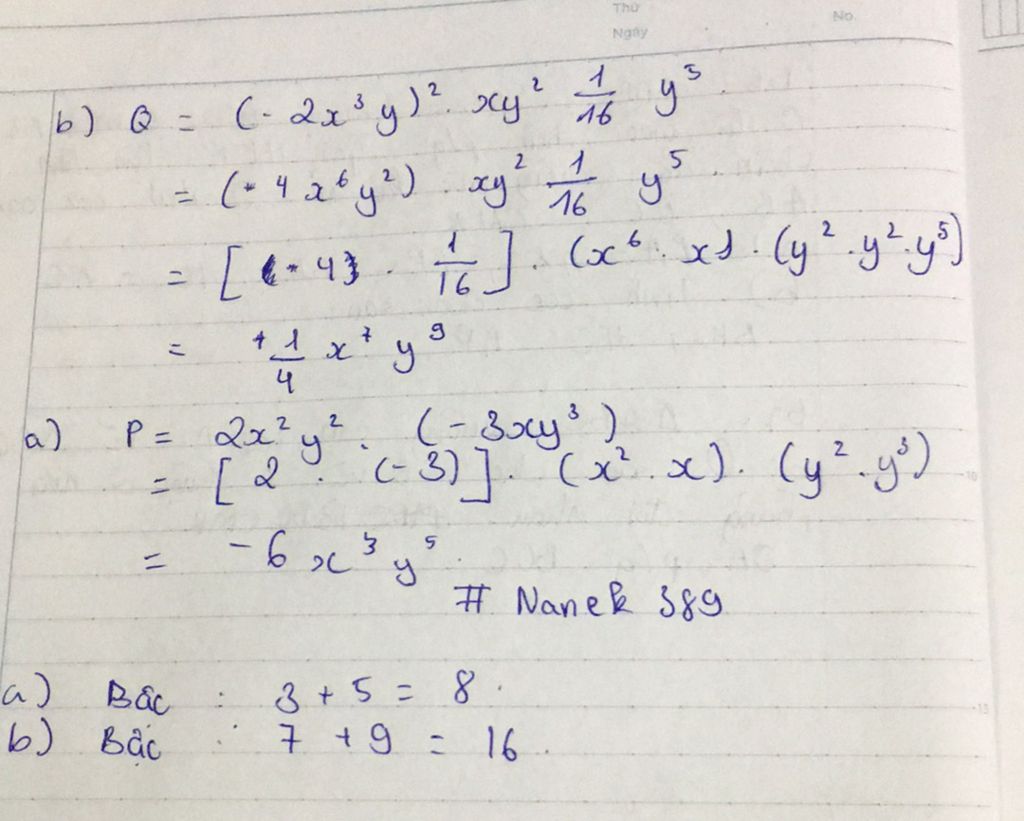 Thứ
Ngày
No.
b) Q = (- 2x³y)². xy² 1/16 y⁵.
= (+ 4x⁶y²) . xy² 1/16 y⁵.
= [ (+ 4) . 1/16 ] . (x⁶ . x) . (y² . y² . y⁵)
= + 1/4 x⁷ y⁹
a) P = 2x²y² . (- 3xy³)
= [ 2 . (-3) ] . (x² . x) . (y² . y³)
= - 6 x³ y⁵.
# Nanek 389
a) Bậc : 3 + 5 = 8 .
b) Bậc : 7 + 9 = 16 .